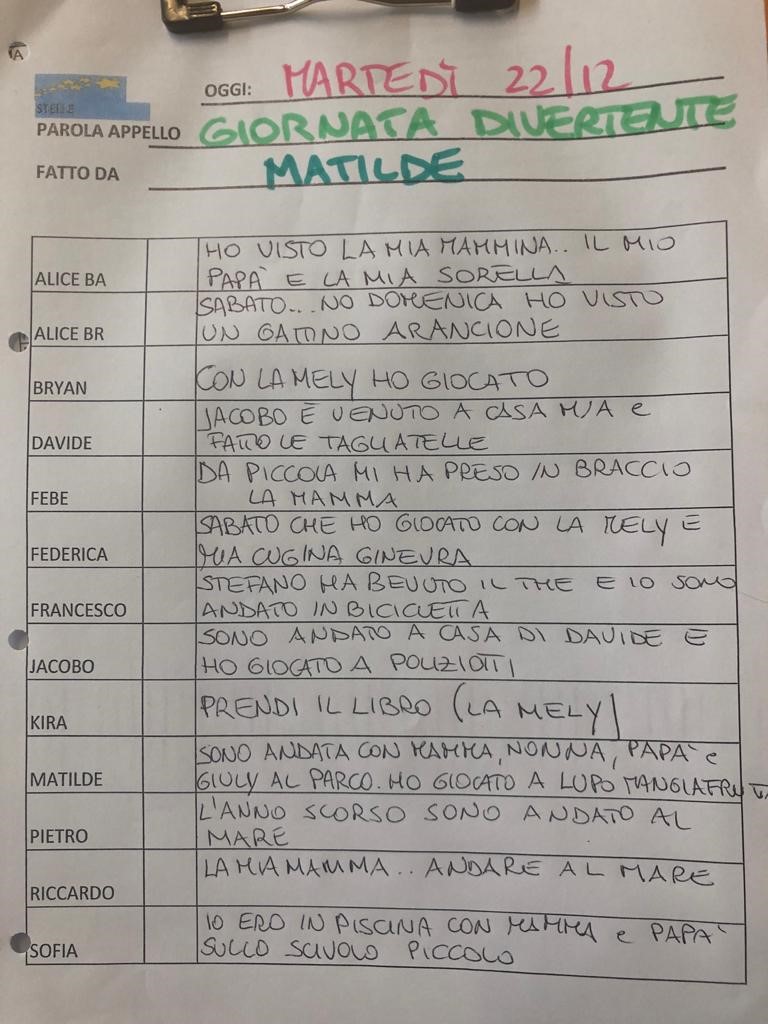 A
OGGI: MARTEDÌ 22/12
STELLE
PAROLA APPELLO GIORNATA DIVERTENTE
FATTO DA MATILDE
HO VISTO LA MIA MAMMINA.. IL MIO
ALICE BA PAPÀ E LA MIA SORELLA
SABATO... NO DOMENICA HO VISTO
ALICE BR UN GATTINO ARANCIONE
BRYAN CON LA MELY HO GIOCATO
JACOBO È VENUTO A CASA MIA e
DAVIDE FATTO LE TAGLIATELLE
DA PICCOLA MI HA PRESO IN BRACCIO
FEBE LA MAMMA
SABATO CHE HO GIOCATO CON LA MELY E
FEDERICA MIA CUGINA GINEVRA
STEFANO HA BEVUTO IL THE E IO SONO
FRANCESCO ANDATO IN BICICLETTA
SONO ANDATO A CASA DI DAVIDE E
JACOBO HO GIOCATO A POLIZIOTTI
KIRA PRENDI IL LIBRO (LA MELY)
SONO ANDATA CON MAMMA, NONNA, PAPÀ e
MATILDE GIULY AL PARCO. HO GIOCATO A LUPO MANGIAFRUTTA
L'ANNO SCORSO SONO ANDATO AL
PIETRO MARE
RICCARDO LA MIA MAMMA.. ANDARE AL MARE
IO ERO IN PISCINA CON MAMMA e PAPÀ
SOFIA SULLO SCIVOLO PICCOLO